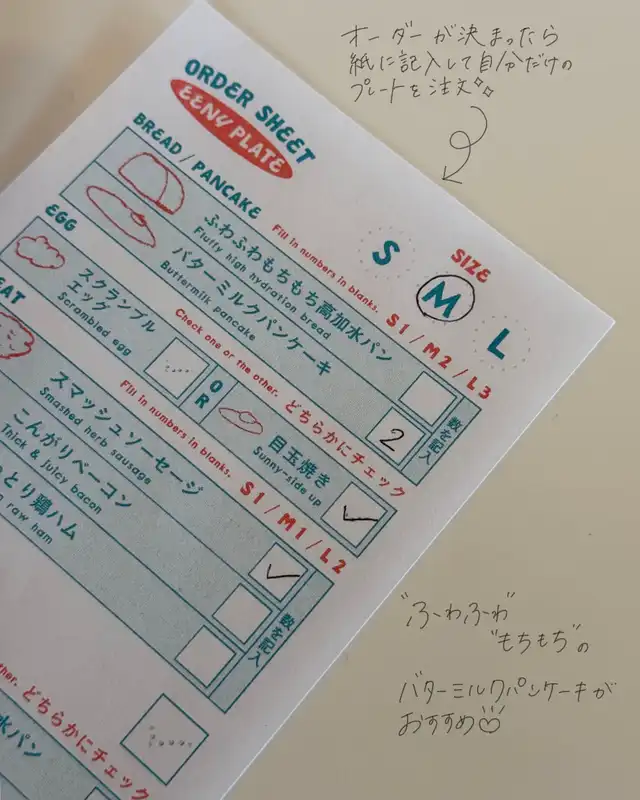 オーダーが決まったら
紙に記入して自分だけの
プレートを注文
ORDER SHEET
EENY PLATE
SIZE
S
M
L
BREAD / PANCAKE
Fill in numbers in blanks.
S1 / M2 / L3
ふわふわもちもち高加水パン
Fluffy high hydration bread
バターミルクパンケーキ
Buttermilk pancake
2
数を記入
EGG
Check one or the other. どちらかにチェック
スクランブル
エッグ
Scrambled egg
OR
目玉焼き
Sunny-side up
EAT
Fill in numbers in blanks.
S1 / M1 / L2
スマッシュソーセージ
Smashed herb sausage
こんがりベーコン
Thick & juicy bacon
とり鶏ハム
raw ham
数を記入
other. どちらかにチェック
水パン
"ふーわふーわ"
"もちもち"の
バターミルクパンケーキが
おすすめ